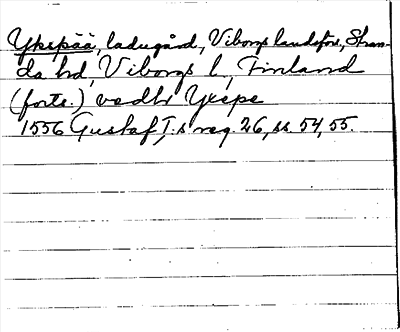 Ykspää, ladugård, Viborgs landsfrs, Stran-
da hd, Viborgs l, Finland
(forts.) vedhr Yxepe
1556 Gustaf I:s reg. 26, ss. 54, 55.